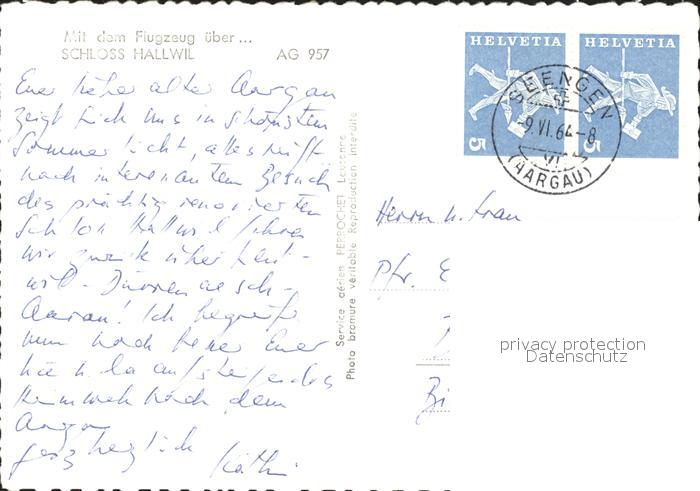 Mit dem Flugzeug über ...
SCHLOSS HALLWIL AG 957
Euer lieber alter Aargau
zeigt sich uns in schönstem
Sommerlicht, alles reift
nach interessantem Besuch
des prächtig renovierten
Schloss Hallwil fahren
wir zurück über Leut-
wil - Dürrenaesch -
Aarau! Ich begreife
nun noch besser Euer
hie & da aufsteigendes
Heimweh nach dem
Aargau
ganz herzlich Käthi
Service aérien PERROCHET Lausanne
Photo bromure véritable Reproduction interdite
HELVETIA
5
HELVETIA
5
SEENGEN
-9.VI.64-8
VI
(AARGAU)
Herrn u. Frau
Pfr.
Bi
privacy protection
Datenschutz